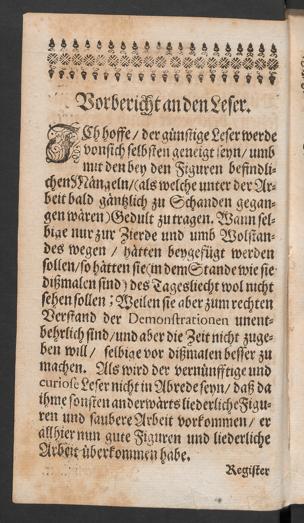 Vorbericht an den Leser.
ICh hoffe / der günstige Leser werde
von sich selbsten geneigt seyn / umb
mit den bey den Figuren befindli-
chen Mängeln / (als welche unter der Ar-
beit bald gäntzlich zu Schanden gegan-
gen wären) Gedult zu tragen. Wann sel-
bige nur zur Zierde und umb Wolstan-
des wegen / hätten beygefügt werden
sollen / so hätten sie (in dem Stande wie sie
dißmalen sind) des Tagesliecht wol nicht
sehen sollen; Weilen sie aber zum rechten
Verstand der Demonstrationen unent-
behrlich sind / und aber die Zeit nicht zuge-
ben will / selbige vor dißmalen besser zu
machen. Als wird der vernünfftige und
curiose Leser nicht in Abrede seyn / daß da
ihme sonsten anderwärts liederliche Figu-
ren und saubere Arbeit vorkommen / er
allhier nun gute Figuren und liederliche
Arbeit überkommen habe.
Register